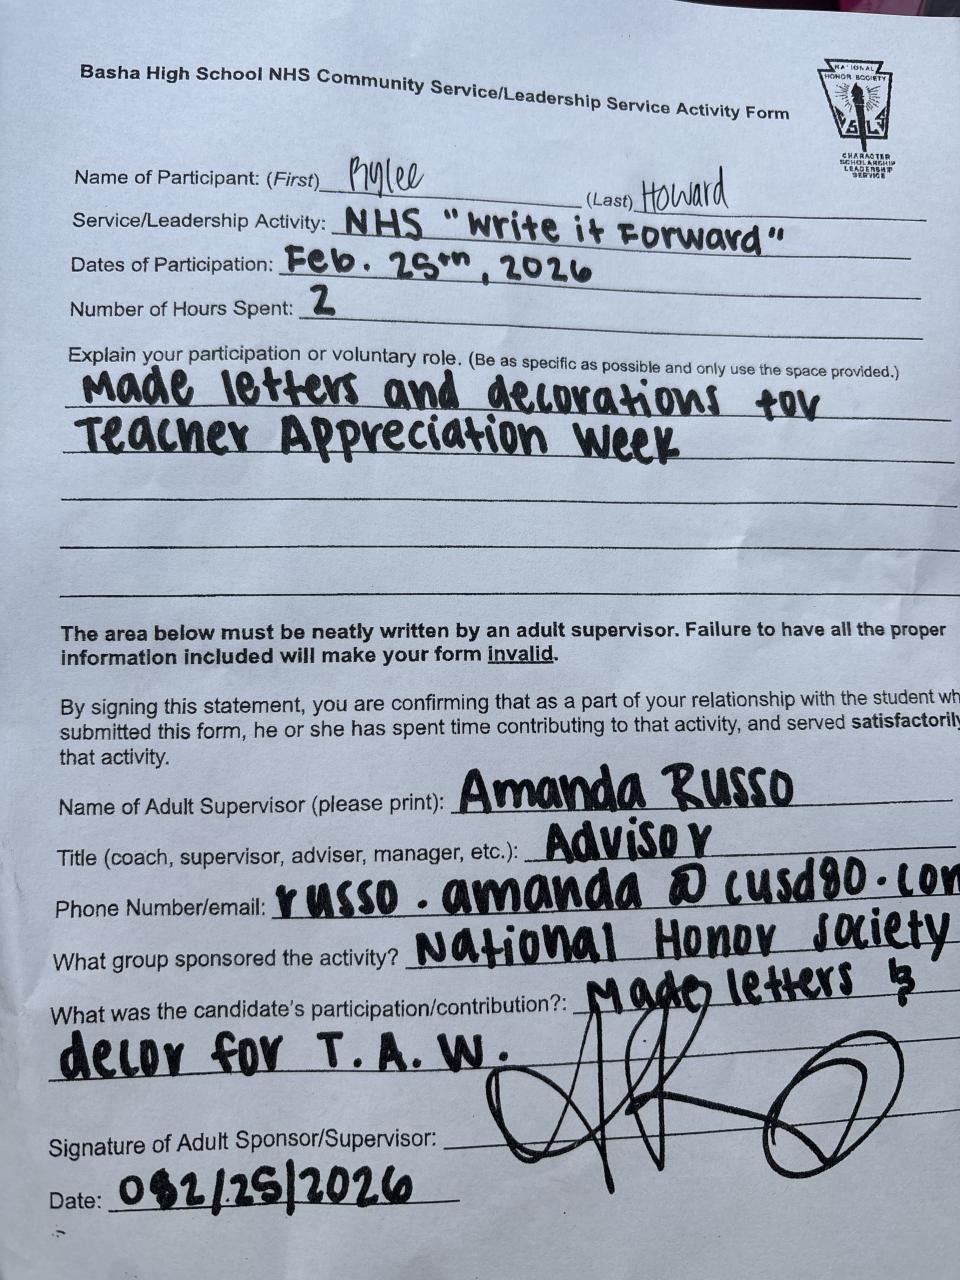 Basha High School NHS Community Service/Leadership Service Activity Form
NATIONAL
HONOR SOCIETY
S L
CHARACTER
SCHOLARSHIP
LEADERSHIP
SERVICE
Name of Participant: (First) Rylee (Last) Howard
Service/Leadership Activity: NHS "Write it Forward"
Dates of Participation: Feb. 25th, 2026
Number of Hours Spent: 2
Explain your participation or voluntary role. (Be as specific as possible and only use the space provided.)
Made letters and decorations for
Teacher Appreciation Week
The area below must be neatly written by an adult supervisor. Failure to have all the proper
information included will make your form invalid.
By signing this statement, you are confirming that as a part of your relationship with the student wh
submitted this form, he or she has spent time contributing to that activity, and served satisfactorily
that activity.
Name of Adult Supervisor (please print): Amanda Russo
Title (coach, supervisor, adviser, manager, etc.): Advisor
Phone Number/email: russo.amanda@cusd80.com
What group sponsored the activity? National Honor Society
What was the candidate's participation/contribution?: Made letters &
decor for T.A.W.
Signature of Adult Sponsor/Supervisor:
Date: 02/25/2026